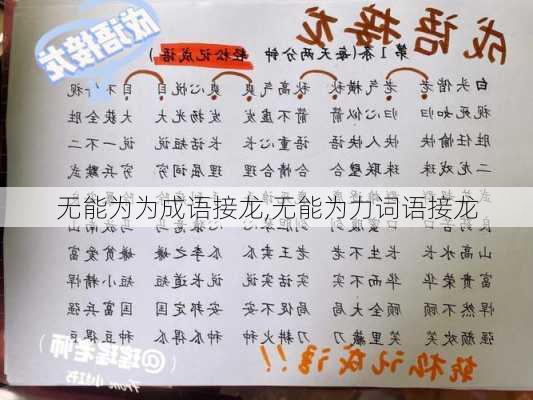 成语接龙
成语接龙
第1条(每天两分钟 轻松记成语)
白头偕老 老气横秋 秋高气爽 爽心悦目 目不斜视
视死如归 归心似箭 箭不虚发 发扬光大 大获全胜
胜任愉快 快人快语 语重心长 长话短说 说一不二
二龙戏珠 珠联璧合 合情合理 理屈词穷 穷兵黩武
无能为为成语接龙,无能为力词语接龙
山高水长 长生不老 老王卖瓜 瓜李之嫌 嫌贫爱富
富贵荣华 华而不实 实话实说 说长道短 短小精悍
悍然不顾 顾全大局 局促不安 安邦定国 国富兵强
强颜欢笑 笑里藏刀 刀耕火种 种瓜得瓜 种豆得豆
轻松记成语!!
From 小红书